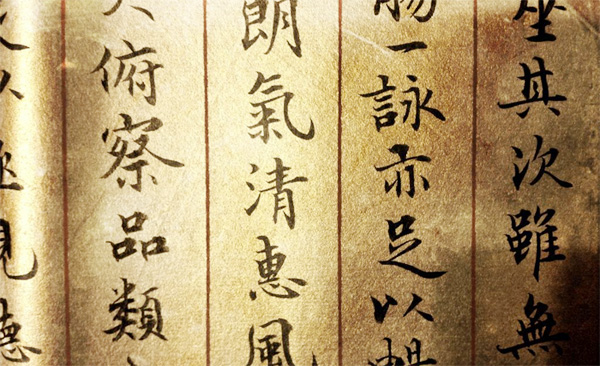 坐其次雖無
觴一詠亦足以暢
朗氣清惠風
大俯察品類
以極視聽